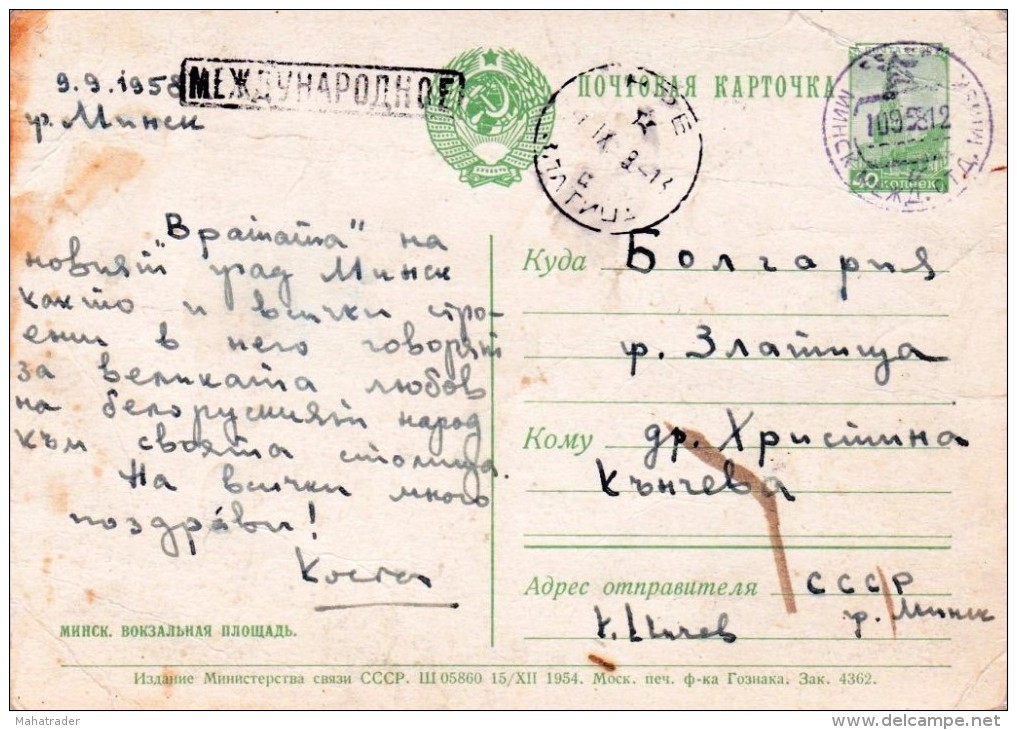 9.9.1958
гр. Минск
МЕЖДУНАРОДНОЕ
ПОЧТОВАЯ КАРТОЧКА
109 58 12
МИНСК МЕЖД. ОТД.
40 КОПЕЕК
"Вратата" на
новият град Минск
както и всички стро-
ени в него говорят
за великата любов
на белоруският народ
към своята столица.
На всички много
поздрави!
Коста
МИНСК. ВОКЗАЛЬНАЯ ПЛОЩАДЬ.
Куда Болгария
гр. Златица
Кому др. Христина
Кънчева
Адрес отправителя СССР
гр. Минск
Издание Министерства связи СССР. Ш 05860 15/XII 1954. Моск. печ. ф-ка Гознака. Зак. 4362.
Mahatrader
www.delcampe.net